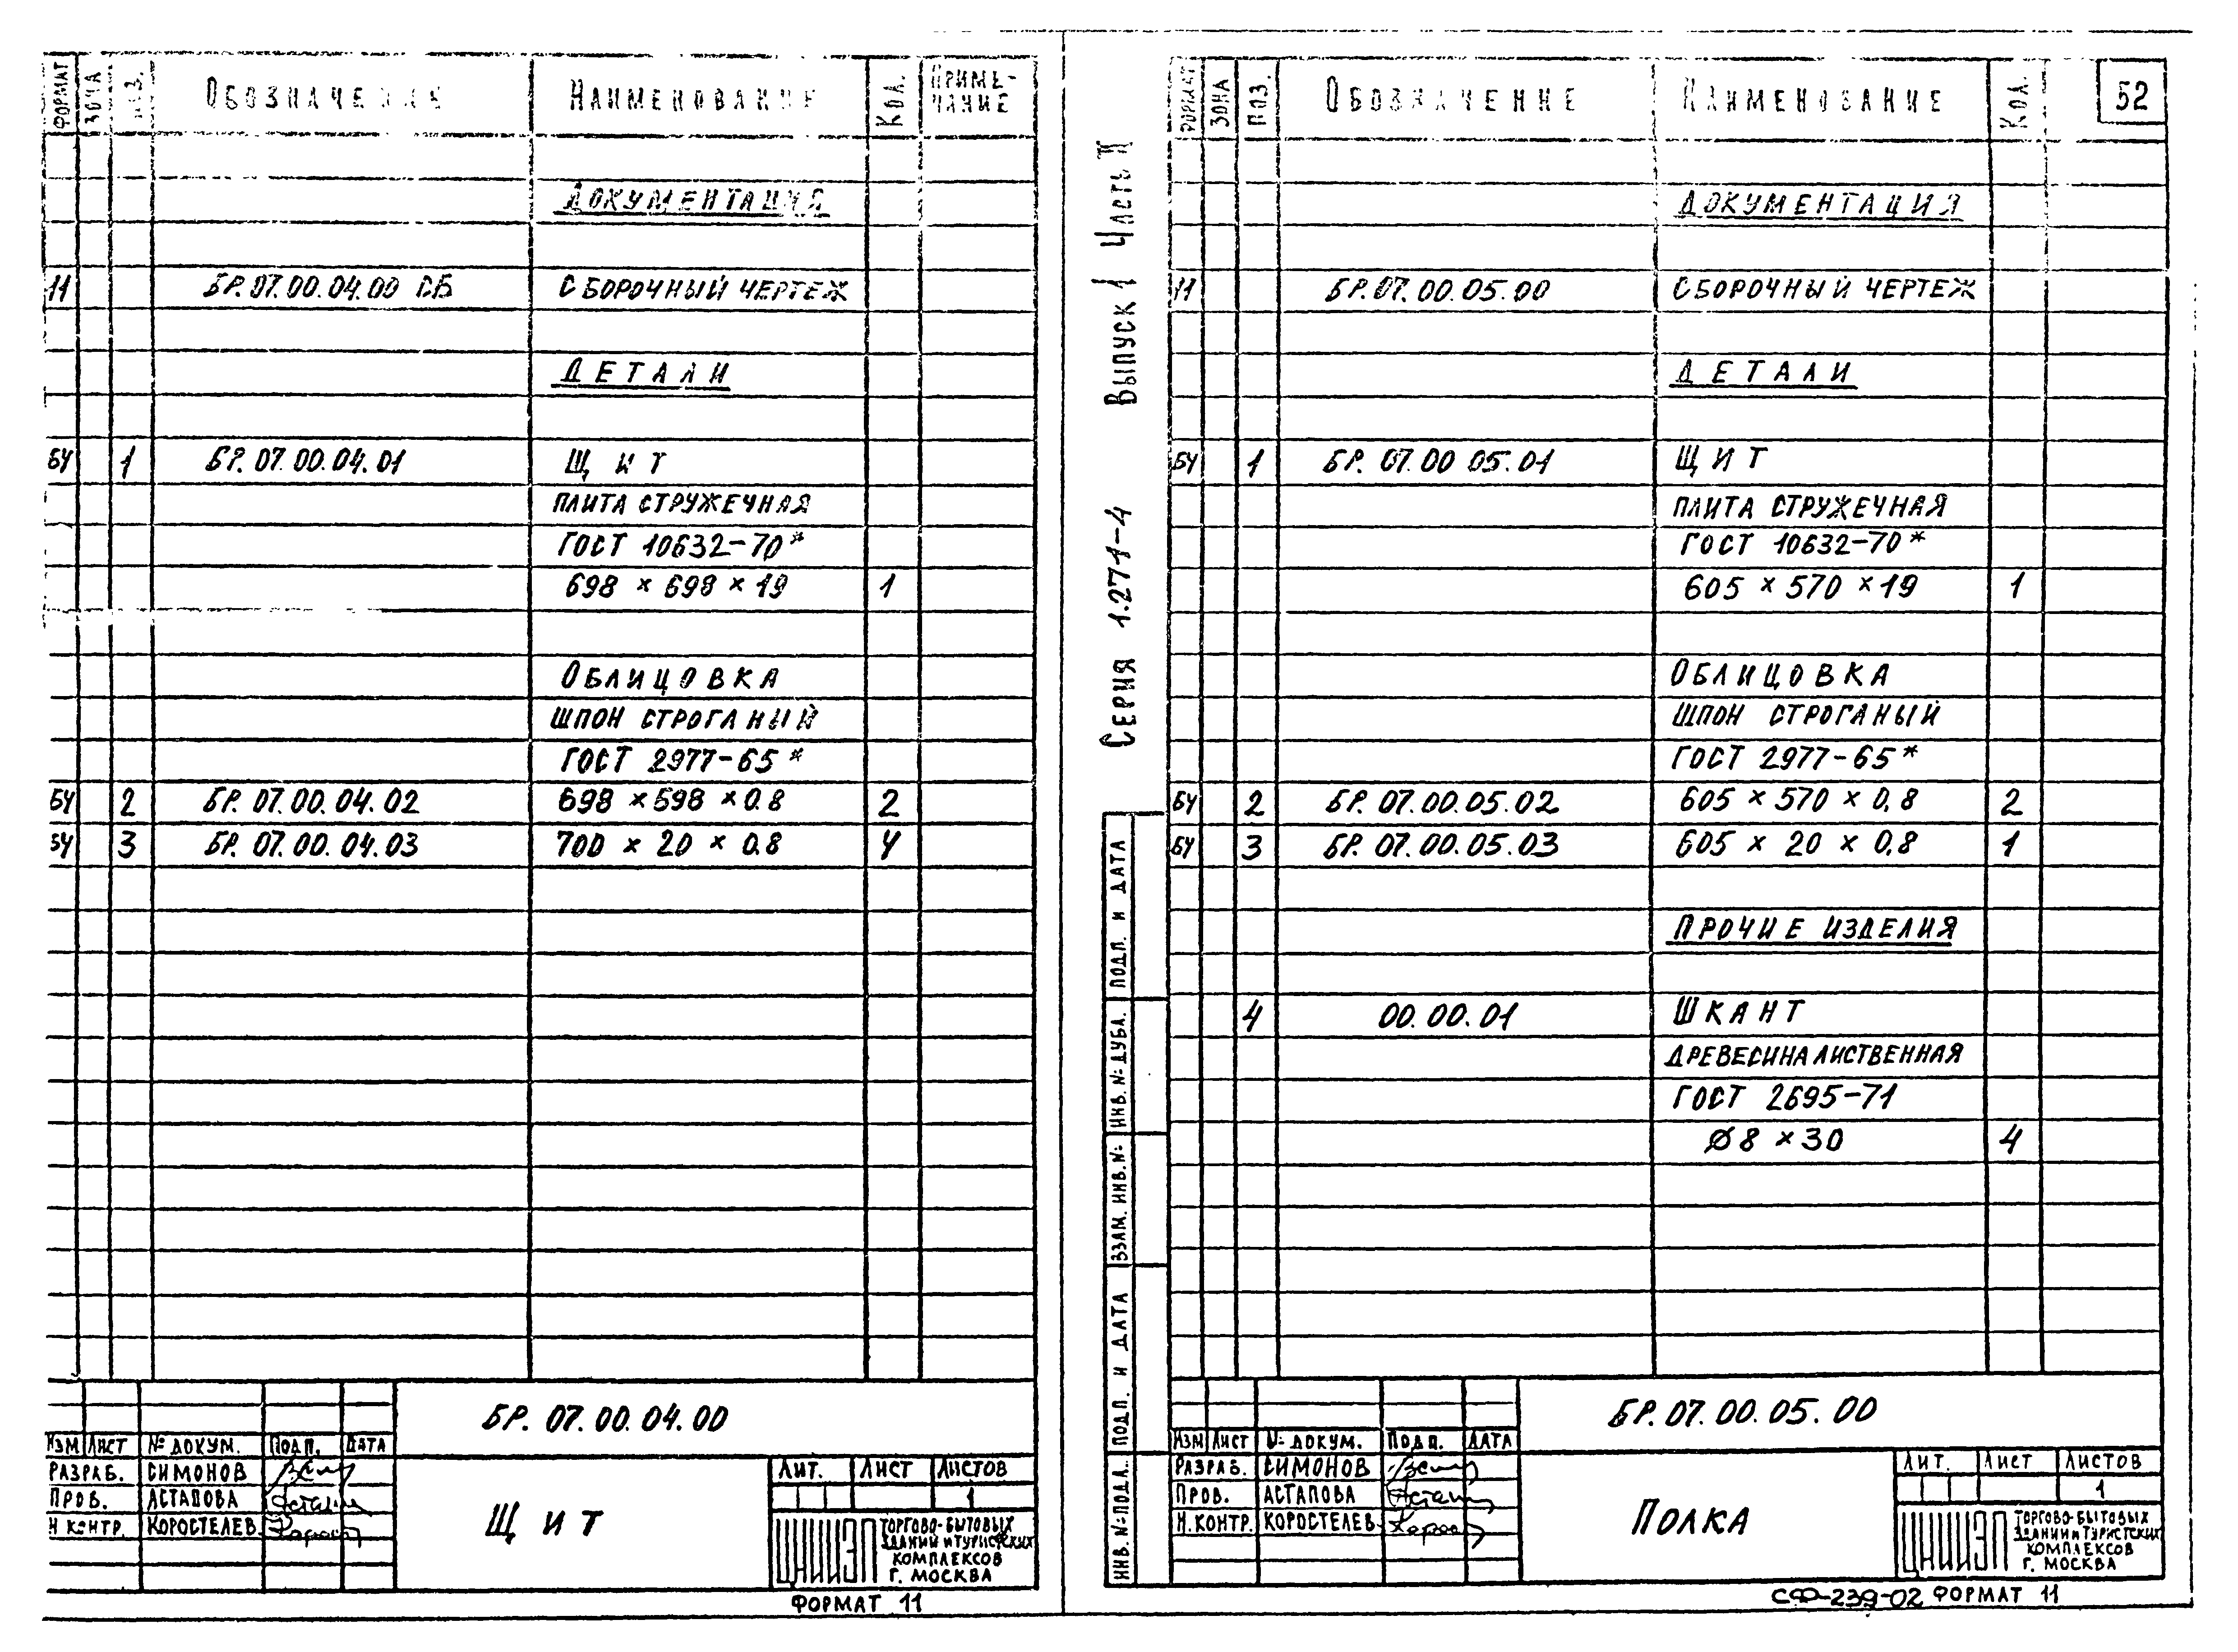 ФОРМАТ ЗОНА ПОЗ. ОБОЗНАЧЕНИЕ НАИМЕНОВАНИЕ КОЛ. ПРИМЕ-
ЧАНИЕ
ДОКУМЕНТАЦИЯ
11 БР.07.00.04.00 СБ СБОРОЧНЫЙ ЧЕРТЕЖ
ДЕТАЛИ
БЧ 1 БР. 07.00.04.01 ЩИТ
ПЛИТА СТРУЖЕЧНАЯ
ГОСТ 10632-70*
698 × 698 × 19 1
ОБЛИЦОВКА
ШПОН СТРОГАНЫЙ
ГОСТ 2977-65*
БЧ 2 БР. 07.00.04.02 698 × 698 × 0.8 2
БЧ 3 БР. 07.00.04.03 700 × 20 × 0.8 4
БР. 07.00.04.00
ИЗМ ЛИСТ № ДОКУМ. ПОДП. ДАТА
РАЗРАБ. СИМОНОВ
ПРОВ. АСТАПОВА
Н.КОНТР. КОРОСТЕЛЕВ
ЩИТ
ЛИТ. ЛИСТ ЛИСТОВ
1
ЦНИИЭП ТОРГОВО-БЫТОВЫХ
ЗДАНИЙ И ТУРИСТСКИХ
КОМПЛЕКСОВ
Г. МОСКВА
ФОРМАТ 11
СЕРИЯ 1.271-4 ВЫПУСК 1 ЧАСТЬ II
ПОДП. И ДАТА
ИНВ. № ДУБЛ.
ВЗАМ. ИНВ. №
ПОДП. И ДАТА
ИНВ. № ПОДЛ.
52
ФОРМАТ ЗОНА ПОЗ. ОБОЗНАЧЕНИЕ НАИМЕНОВАНИЕ КОЛ.
ДОКУМЕНТАЦИЯ
11 БР.07.00.05.00 СБОРОЧНЫЙ ЧЕРТЕЖ
ДЕТАЛИ
БЧ 1 БР. 07.00 05.01 ЩИТ
ПЛИТА СТРУЖЕЧНАЯ
ГОСТ 10632-70*
605 × 570 × 19 1
ОБЛИЦОВКА
ШПОН СТРОГАНЫЙ
ГОСТ 2977-65*
БЧ 2 БР. 07.00.05.02 605 × 570 × 0,8 2
БЧ 3 БР. 07.00.05.03 605 × 20 × 0,8 1
ПРОЧИЕ ИЗДЕЛИЯ
4 00.00.01 ШКАНТ
ДРЕВЕСИНА ЛИСТВЕННАЯ
ГОСТ 2695-71
Ø 8 × 30 4
БР.07.00.05.00
ИЗМ ЛИСТ № ДОКУМ. ПОДП. ДАТА
РАЗРАБ. СИМОНОВ
ПРОВ. АСТАПОВА
Н.КОНТР. КОРОСТЕЛЕВ
ПОЛКА
ЛИТ. ЛИСТ ЛИСТОВ
1
ЦНИИЭП ТОРГОВО-БЫТОВЫХ
ЗДАНИЙ И ТУРИСТСКИХ
КОМПЛЕКСОВ
Г. МОСКВА
СФ-239-02 ФОРМАТ 11